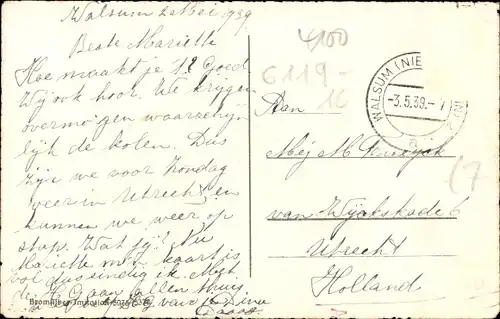 Walsum 2 Mei 939
Beste Mariette
Hoe maakt je 't? Goed
Wij ook hoor. We krijgen
overmorgen waarschijn
lijk de kolen. Dus
zijn we voor Zondag
weer in Utrecht en
kunnen we weer op
stap. Wat jij? Nu
Mariette mijn kaart is
vol dus eindig ik. Met
de Gr. aan allen thuis
van je
4100
6119-
16
WALSUM (NIE
-3.5.39.-
a
Aan
Mej M
van Wijckskade 6
Utrecht
Holland
17
Bromsilber-Imitation